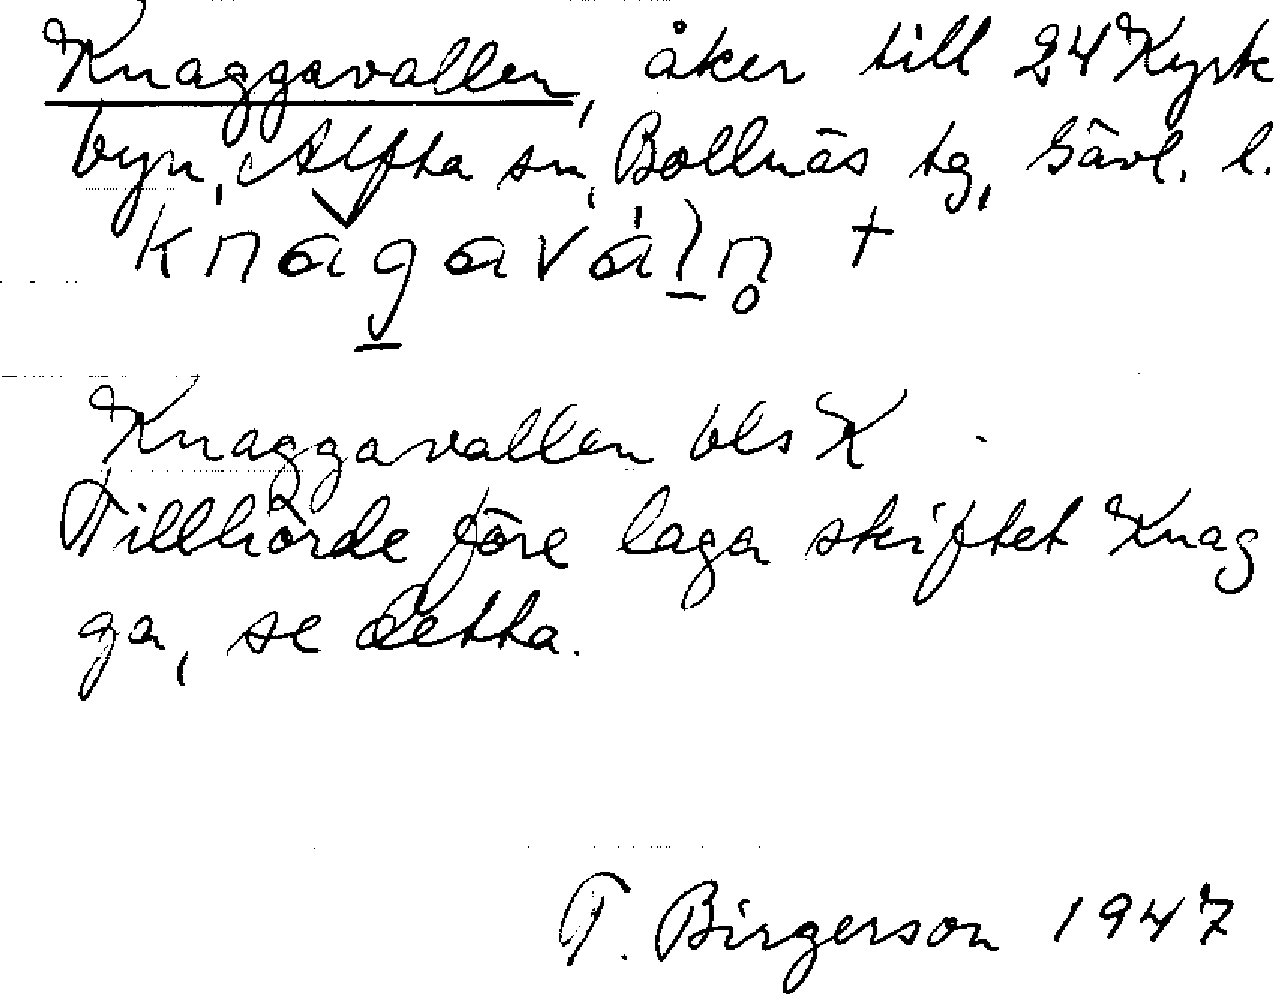 Knaggavallen, åker till 24 Kyrk
byn, Alfta sn, Bollnäs tg, Gävl. l.
knǎg̱aváḻn̥ +
Knaggavallen bls K
Tillhörde före laga skiftet Knag
ga, se detta.
T. Birgerson 1947